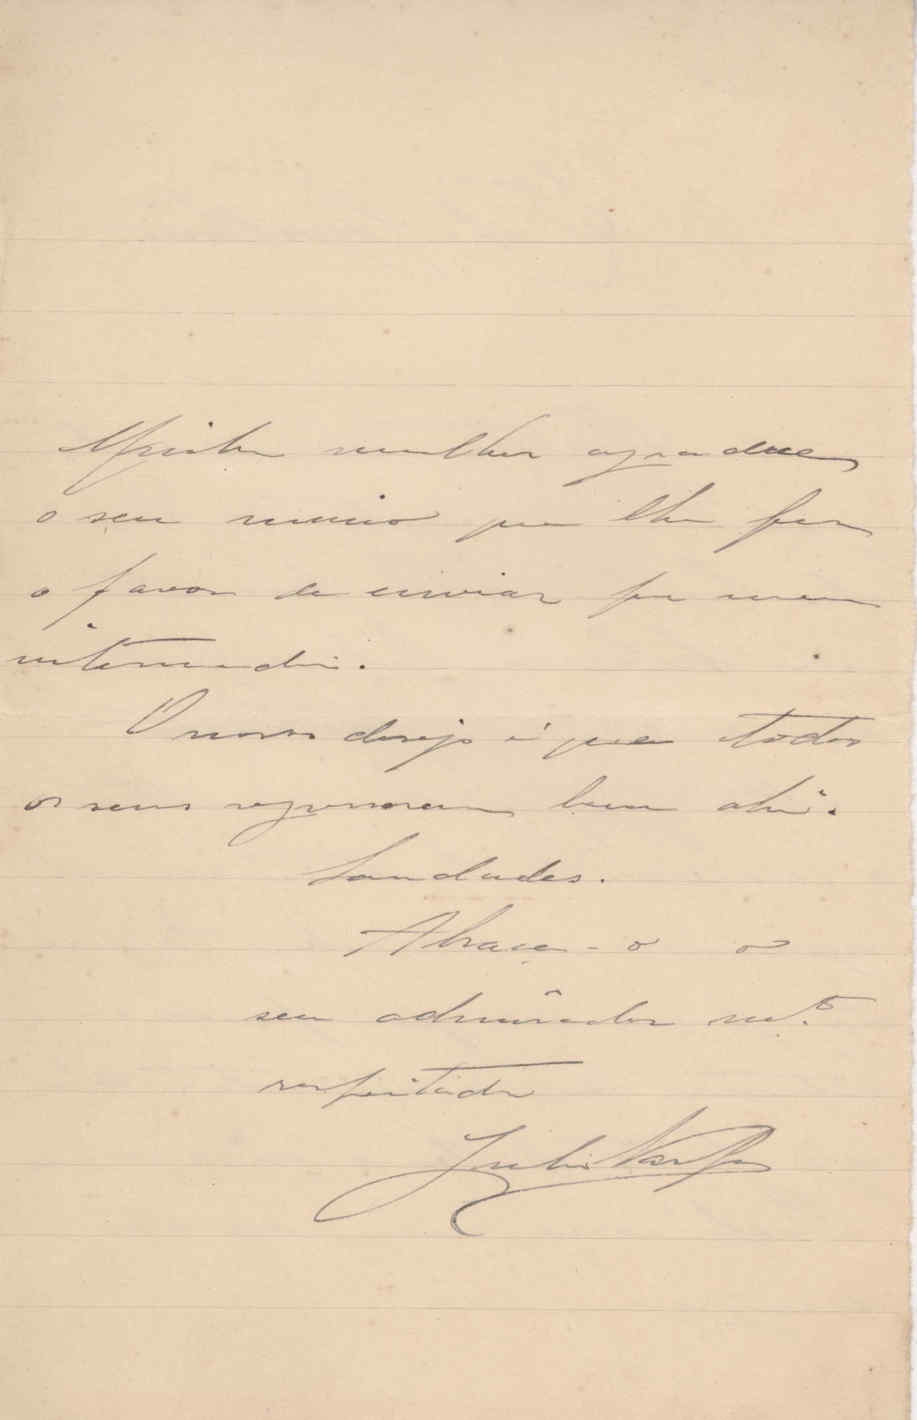 Minha mulher agradece
o seu mimo que lhe fez
o favor de enviar por meu
intermedio.
O nosso desejo é que todos
os seus regressem bem ahi.
Saudades.
Abraça-o o
seu admirador mto
respeitador
Julio